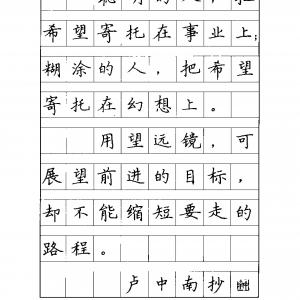 明的人，
希望寄托在事业上；
糊涂的人，把希望
寄托在幻想上。
用望远镜，可
展望前进的目标，
却不能缩短要走的
路程。
卢中南抄